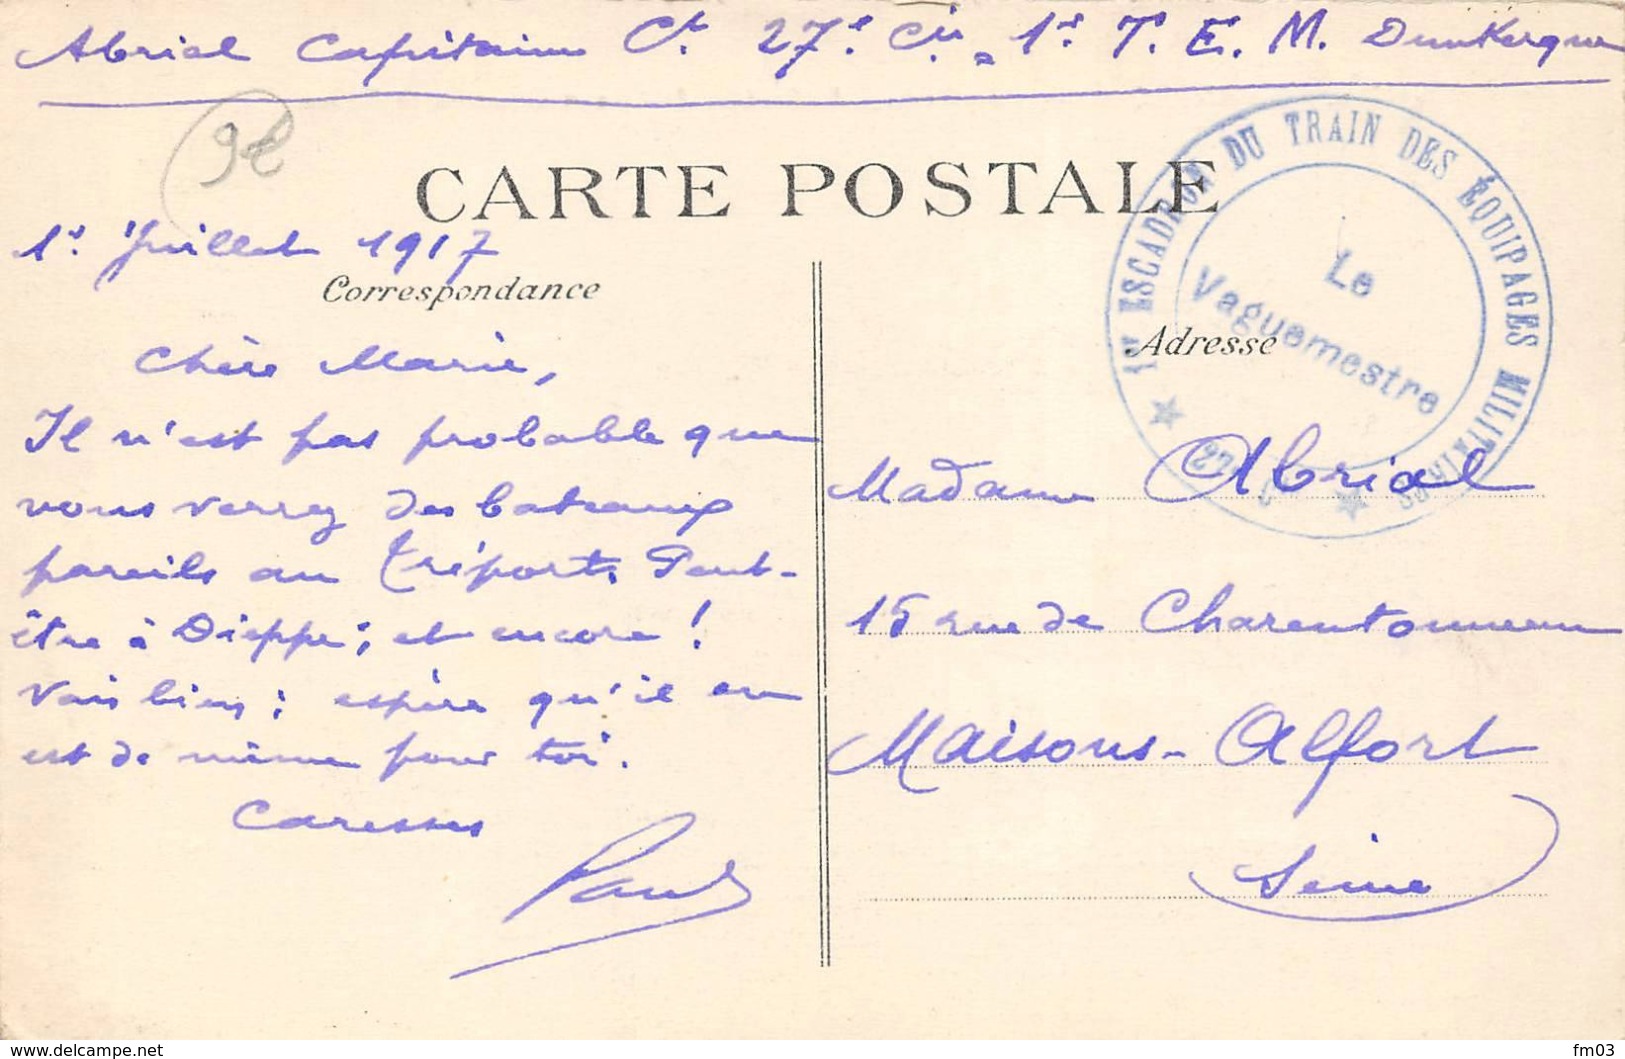 Abrial Capitaine Ct 27e Cie 1er T. E. M. Dunkerque
CARTE POSTALE
1er Juillet 1917
Correspondance
Chère Marie,
Il n'est pas probable que
vous verrez des bateaux
pareils au Tréport. Peut-
être à Dieppe; et encore !
Vais bien; espère qu'il en
est de même pour toi.
Caresses
Paul
1er ESCADRON DU TRAIN DES ÉQUIPAGES MILITAIRES
Le
Vaguemestre
27 C
Adresse
Madame Abrial
15 rue de Charentonneau
Maisons-Alfort
Seine
www.delcampe.net
fm03